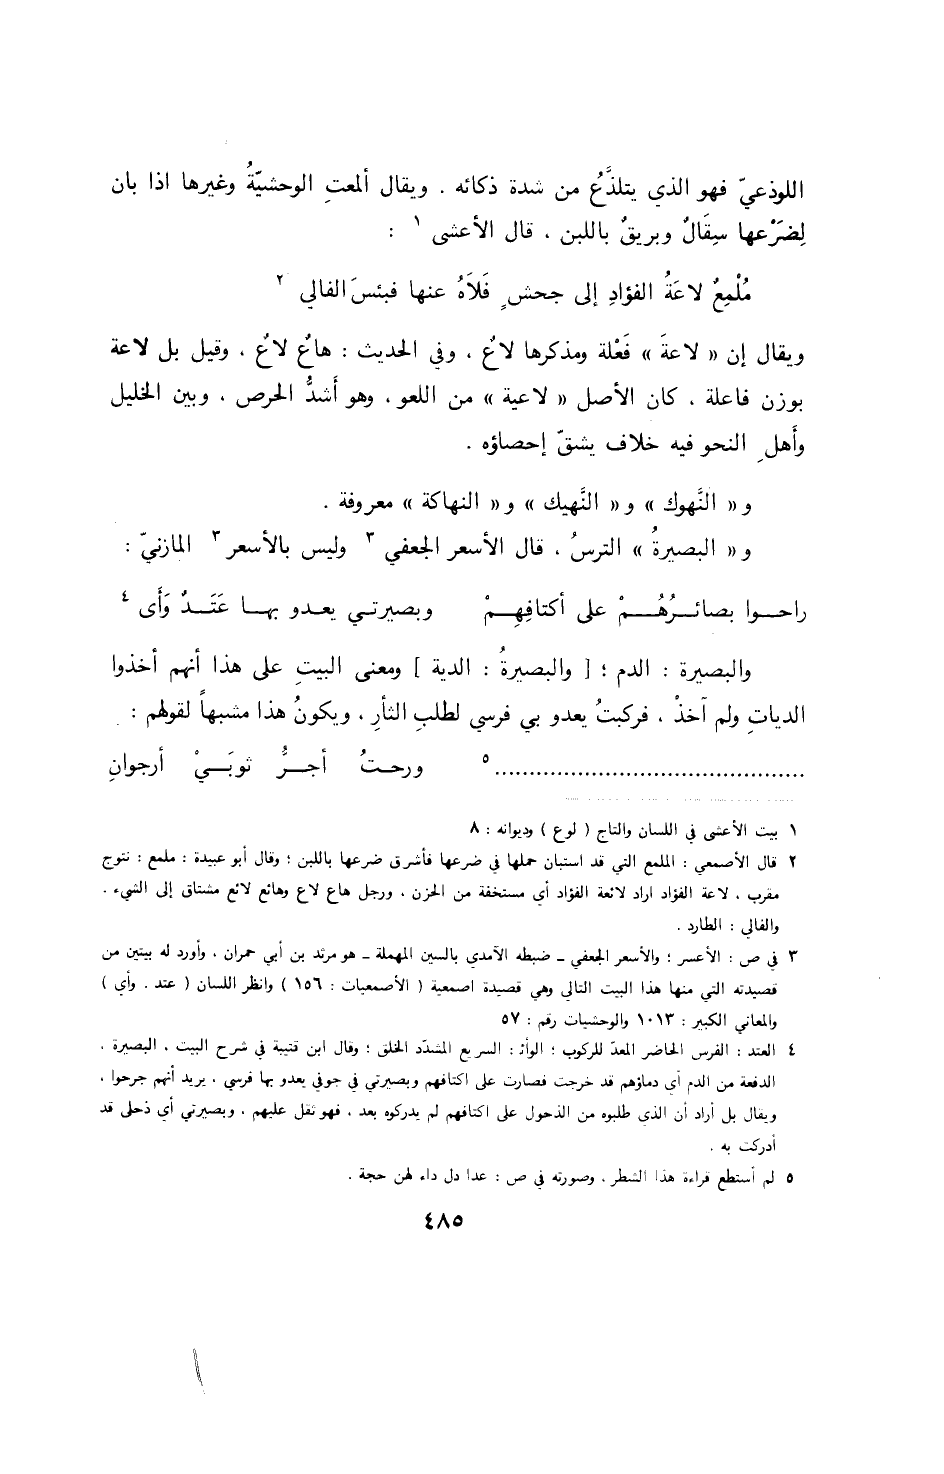 اللوذعيّ فهو الذي يتلذَّعُ من شدة ذكائه . ويقال ألمعتِ الوحشيّةُ وغيرها اذا بان
لِضَرْعها سِقَالٌ وبريقٌ باللبن ، قال الأعشى ١ :
مُلْمِعٌ لاعَةُ الفؤادِ إلى جحشٍ فَلَاَهُ عنها فبئسَ الفالي ٢
ويقال إن « لاعةَ » فَعْلة ومذكرها لاعٌ ، وفي الحديث : هاعٌ لاعٌ ، وقيل بل لاعة
بوزن فاعلة ، كان الأصل « لاعية » من اللعو ، وهو أشدُّ الحرص ، وبين الخليل
وأهلِ النحو فيه خلاف يشقّ إحصاؤه .
و « النَّهوك » و « النَّهيك » و « النهاكة » معروفة .
و « البصيرةُ » الترسُ ، قال الأسعر الجعفي ٣ وليس بالأسعر ٣ المازنيّ :
راحـوا بصائـرُهُـمْ على أكتافِهِـمْ وبصيرتـي يعـدو بهـا عَتَـدٌ وَأَى ٤
والبصيرة : الدم ؛ [ والبصيرةُ : الدية ] ومعنى البيتِ على هذا أنهم أخذوا
الدياتِ ولم آخذْ ، فركبتُ يعدو بي فرسي لطلبِ الثأرِ ، ويكونُ هذا مشبهاً لقولهم :
............................................ ٥ ورحـتُ أجـرُّ ثوبَـيْ أرجوانِ
١ بيت الأعشى في اللسان والتاج ( لوع ) وديوانه : ٨
٢ قال الأصمعي : الملمع التي قد استبان حملها في ضرعها فأشرق ضرعها باللبن ؛ وقال أبو عبيدة : ملمع : نتوج
مقرب ، لاعة الفؤاد اراد لائعة الفؤاد أي مستخفة من الحزن ، ورجل هاع لاع وهائع لائع مشتاق إلى الشيء .
والفالي : الطارد .
٣ في ص : الأعسر ؛ والأسعر الجعفي ـ ضبطه الآمدي بالسين المهملة ـ هو مرثد بن أبي حمران ، وأورد له بيتين من
قصيدته التي منها هذا البيت التالي وهي قصيدة اصمعية ( الأصمعيات : ١٥٦ ) وانظر اللسان ( عتد . وأي )
والمعاني الكبير : ١٠١٣ والوحشيات رقم : ٥٧
٤ العتد : الفرس الحاضر المعدّ للركوب ؛ الوأى : السريع المشدّد الخلق ؛ وقال ابن قتيبة في شرح البيت ، البصيرة ،
الدفعة من الدم أي دماؤهم قد خرجت فصارت على اكتافهم وبصيرتي في جوفي يعدو بها فرسي ، يريد أنهم جرحوا ،
ويقال بل أراد أن الذي طلبوه من الذحول على اكتافهم لم يدركوه بعد ، فهو ثقل عليهم ، وبصيرتي أي ذحلى قد
أدركت به .
٥ لم أستطع قراءة هذا الشطر ، وصورته في ص : عدا دل داء لهن حجة .
٤٨٥